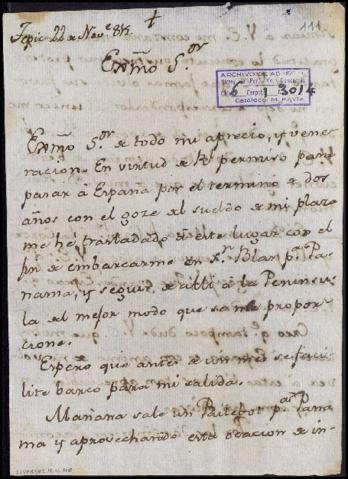 111
Tepic 22 de Nov.e 815
Exmo S.or
ARCHIVO DE
3014
Exmo S.or de todo mi aprecio, y vene-
racion. En virtud de Rl permiso para
pasar à España por el termino de dos
años con el goze del sueldo de mi plaza
me hé trasladado à este lugar con el
fin de embarcarme en Sn Blas pa Pa-
namà, y seguir de alli à la Penínsu-
la del mejor modo que se me propor-
cione.
Espero que antes de un mes se faci-
lite barco para mi salida.
Mañana sale un Pailebot pa Pana-
mà y aprovechando esta ocacion de in-